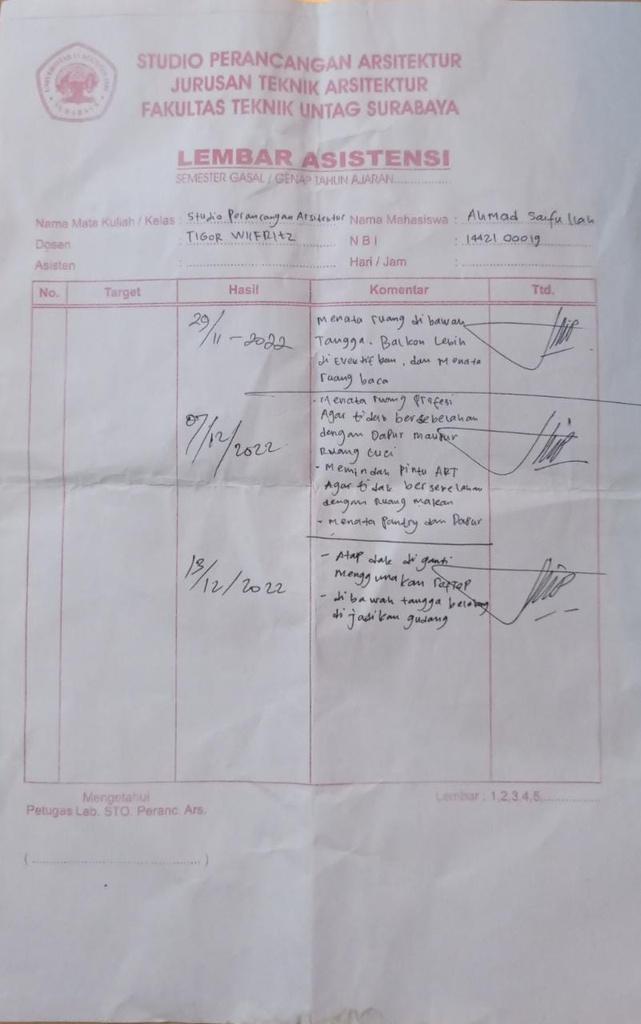 STUDIO PERANCANGAN ARSITEKTUR
JURUSAN TEKNIK ARSITEKTUR
FAKULTAS TEKNIK UNTAG SURABAYA
LEMBAR ASISTENSI
SEMESTER GASAL / GENAP TAHUN AJARAN..............
Nama Mata Kuliah / Kelas : Studio Perancangan Arsitektur Nama Mahasiswa : Ahmad Saifullah
Dosen : TIGOR WILFRITZ N B I : 1442100019
Asisten : Hari / Jam :
No. Target Hasil Komentar Ttd.
29/11-2022
Menata ruang dibawah
Tangga. Balkon Lebih
di Evektif kan, dan Menata
ruang baca
07/12/2022
- Menata ruang Profesi
Agar tidak bersebelahan
dengan Dapur maupun
Ruang cuci
- Memindah Pintu ART
Agar tidak bersebelahan
dengan ruang makan
- Menata pantry dan Dapur
13/12/2022
- Atap dak di ganti
menggunakan
- di bawah tangga
di jadikan gudang
Mengetahui
Petugas Lab. STO. Peranc. Ars.
Lembar : 1,2,3,4,5,..............
(..........................................)